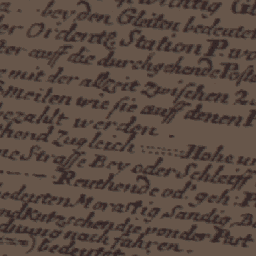 wichtig Gl
bey den Gleiten bedeutet
Ordentl. Station P. wo
ter auff die durchgehende Poste
mit der allzeit zwischen 2.
meilen wie sie auff denen P
bezahlt werden.
hend Zugleich ........ Hohe un
ne Strasse Bey oder Schleiff
Reuthende od. geh: P
bedeuten Morastig, Sandig, B
und Kutzschen die von der Post
nach fahren.
bedeutet